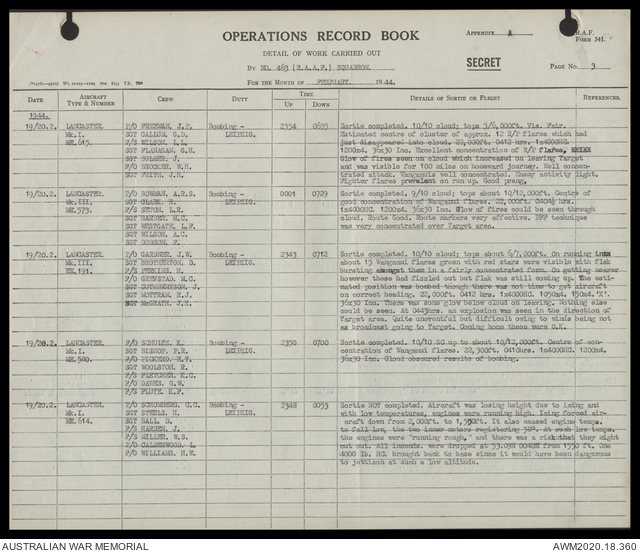 OPERATIONS RECORD BOOK
APPENDIX A
R.A.F. FORM 541.
DETAIL OF WORK CARRIED OUT
SECRET
BY NO. 463 (R.A.A.F.) SQUADRON.
PAGE NO. 3
FOR THE MONTH OF FEBRUARY. 1944.
DATE AIRCRAFT TYPE & NUMBER CREW DUTY TIME UP DOWN DETAILS OF SORTIE OR FLIGHT REFERENCES.
1944.
19/20.2. LANCASTER Mk.I. ME.615. Bombing - LEIPZIG. 2354 0655
P/O FREEMAN, J.P.
SGT CALLUM, G.D.
F/S WILSON, L.L.
SGT FLANAGAN, G.H.
F/O BROOKER, W.H.
SGT FRITH, J.H.
Sortie completed. 10/10 cloud; tops 5/6,000ft. Vis. Fair.
Estimated centre of cluster of approx. 12 R/P flares which had
just disappeared into cloud. 22,000ft. 0412 hrs. 1x4000HC.
1200x4, 36x30 Inc. Excellent concentration of R/P flares.
Glow of fires seen on cloud which increased on leaving Target
and was visible for 100 miles on homeward journey. Well concen-
trated attack. Wanganuis well concentrated. Enemy activity light.
Fighter flares prevalent on run up. Good prang.
19/20.2. LANCASTER. Mk.III. EE.573. Bombing - LEIPZIG. 0001 0729
P/O BOWMAN, A.R.S.
SGT CLARK, R.
F/S SETON, L.R.
SGT BARBER, W.C.
SGT WESTGATE, L.F.
SGT WILSON, A.C.
SGT DOBSON, F.
Sortie completed. 9/10 cloud; tops about 10/12,000ft. Centre of
good concentration of Wanganui flares. 22,000ft. 0404½ hrs.
1x4000HC. 1200x4, 36x30 Inc. Glow of fires could be seen through
cloud. Route Good. Route markers very effective. PFF technique
was very concentrated over Target area.
19/20.2. LANCASTER. Mk.III. EE.191. Bombing - LEIPZIG. 2343 0712
P/O GARDNER, J.W.
SGT BROTHERTON, D.
F/S PERKINS, H.
P/O GREYSTAD, M.C.
SGT CUTHBERTSON, J.
SGT MOTTRAM, R.J.
SGT McGRATH, J.R.
Sortie completed. 10/10 cloud; tops about 6/7,000ft. On running into
about 15 Wanganui flares green with red stars were visible with flak
bursting amongst them in a fairly concentrated form. On getting nearer
however these had fizzled out but flak was still coming up. The esti-
mated position was bombed though there was not time to get aircraft
on correct heading. 21,000ft. 0412 hrs. 1x4000HC. 1050x4. 150x4.'X'.
36x30 Inc. There was some glow below cloud on leaving. Nothing else
could be seen. At 0443hrs. an explosion was seen in the direction of
Target area. Quite uneventful but difficult owing to winds being not
as broadcast going to Target. Coming home these were O.K.
19/20.2. LANCASTER. Mk.I. ME.580. Bombing - LEIPZIG. 2350 0700
P/O SCHULTZ, K.
SGT BISHOP, P.R.
F/O PICKERD, H.T.
SGT WOOLSTON, R.
F/S FLETCHER, K.C.
F/O DAWES, G.W.
F/S FLUTE, K.F.
Sortie completed. 10/10 SC up to about 10/12,000ft. Centre of con-
centration of Wanganui flares. 22,300ft. 0410hrs. 1x4000HC. 1200x4.
36x30 Inc. Cloud obscured results of bombing.
19/20.2. LANCASTER. Mk.I. ME.614. Bombing - LEIPZIG. 2348 0053
P/O SCHOMBERG, C.C.
SGT STEELS, H.
SGT BALL, D.
F/S HARDEN, J.
F/S MILLER, W.B.
F/O CALDERWOOD, L.
F/O WILLIAMS, H.K.
Sortie NOT completed. Aircraft was losing height due to Icing and
with low temperatures, engines were running high. Icing forced air-
craft down from 2,000ft. to 1,550ft. It also caused engine temps.
to fall low, the two inner motors registering 58°. At such low temps.
the engines were "running rough," and there was a risk that they might
cut out. All incends. were dropped at 53.08N 0040E from 1550 ft. One
4000 lb. HC. brought back to base since it would have been dangerous
to jettison at such a low altitude.
AUSTRALIAN WAR MEMORIAL
AWM2020.18.360